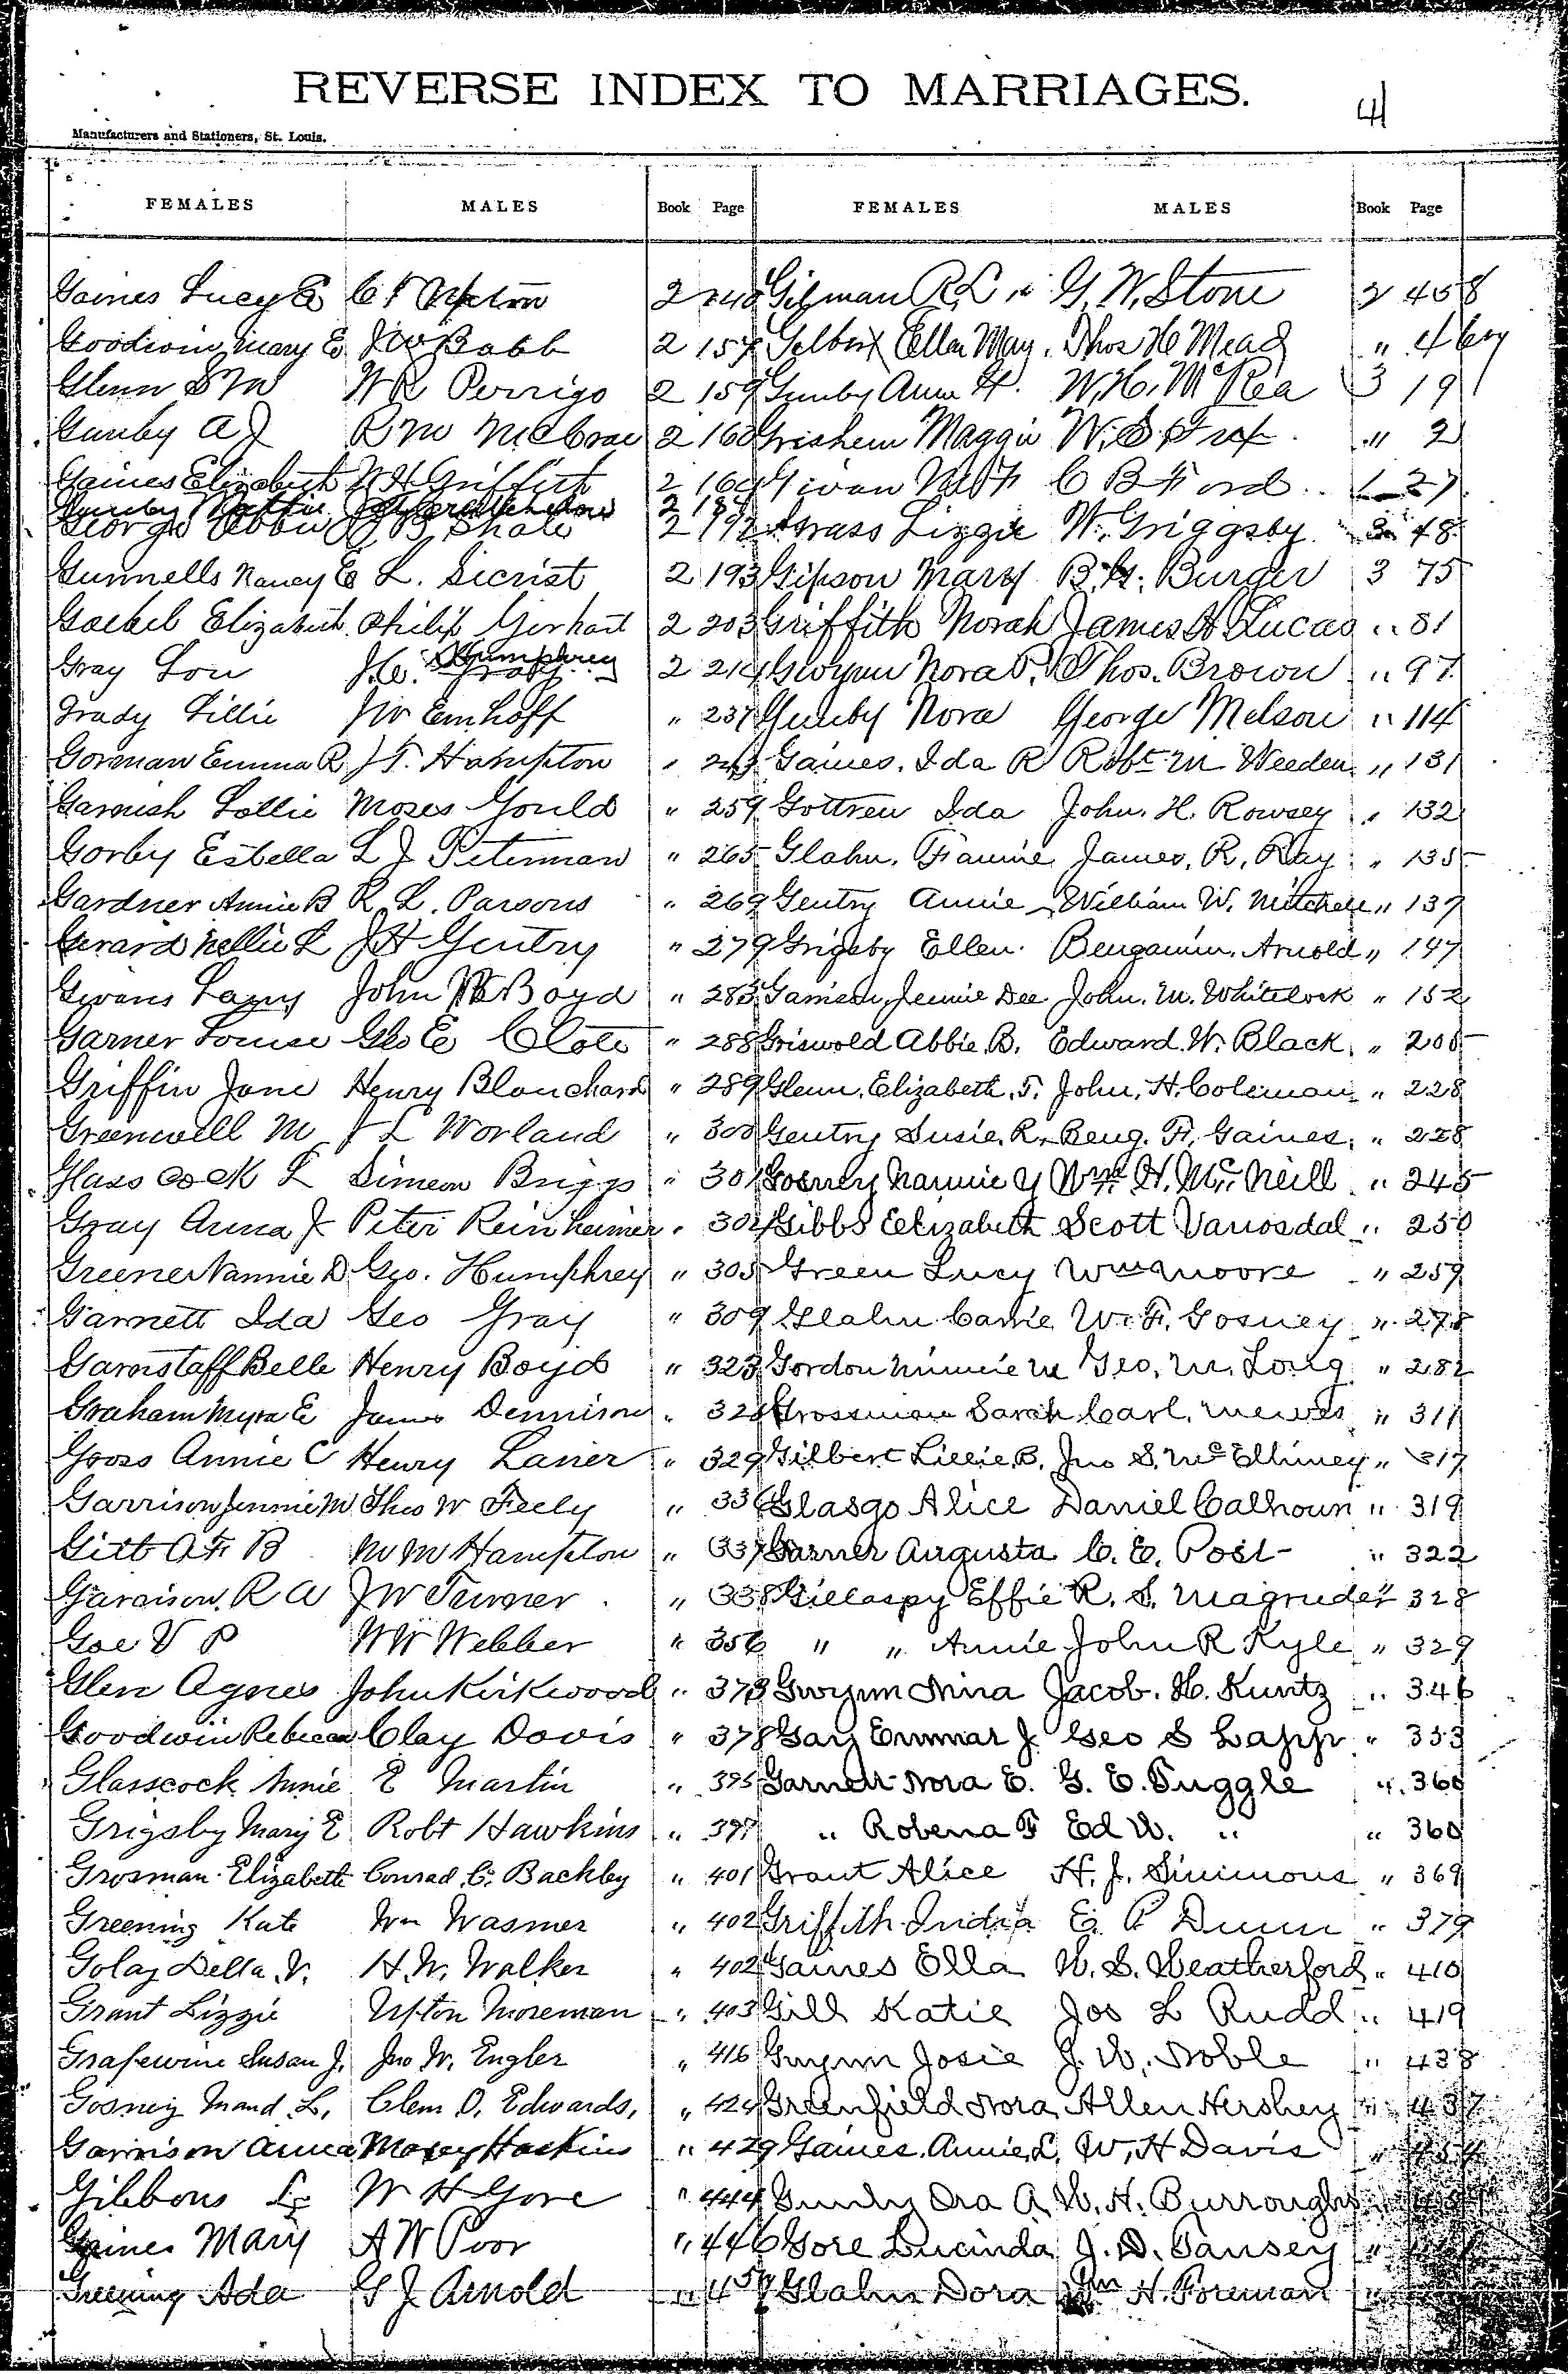 REVERSE INDEX TO MARRIAGES.
41
Manufacturers and Stationers, St. Louis.
FEMALES MALES Book Page FEMALES MALES Book Page
Gaines Lucy E C F Upton 2 140 Gilman R. L. G. W. Stone 2 458
Goodwin Mary E J W Babb 2 157 Gilbert Ella May. Thos H Mead " 4
Glenn S M W R Perrigo 2 159 Gunby Ann H. W. H. McRea 3 19
Gunby A J R M McCrae 2 160 Grishem Maggie W. S. " 2
Gaines Elizabeth W H Griffith 2 164 Givan C B Ford 27
Gunby Mattie 2
George Abbie J B Shale 2 192 Grass Lizzie W. Griggsby 3 48
Gunnells Nancy E L. Sicrist 2 193 Gipson Mary B. H. Burger 3 75
Goebel Elizabeth Philip Gerhart 2 203 Griffith Norah James H Lucas " 81
Gray Lou J. C. Humphrey 2 214 Gwynn Nora P. Thos. Brown " 97
Grady Lillie J W Emhoff " 237 Gunby Nora George Melson " 114
Gorman Emma R J T. Hampton " 243 Gaines. Ida R Robt M Weeden " 131
Garnish Lollie Moses Gould " 259 Gottren Ida John. H. Rowsey " 132
Gorby Estella L J Peterman " 265 Glahn. Fannie James. R. Ray " 135
Gardner Annie B R. L. Parsons " 269 Gentry Annie William W. Mitchell " 137
Gerard Nellie L J H Gentry " 279 Grigsby Ellen. Bengamin. Arnold " 147
Givans John W Boyd " 283 Garrison, Jennie Dee John. M. Whitelock " 152
Garner Louise Geo E Clote " 288 Griswold Abbie. B. Edward. W. Black. " 205
Griffin Jane Henry Blanchard " 289 Glenn. Elizabeth. F. John, H. Coleman " 228
Greenwell M J L Worland " 300 Gentry Susie. R. Beng. F. Gaines. " 228
Glasscock L Simeon Briggs " 301 Gosney Nannie Y Wm H. McNeill " 245
Gray Anna J Peter Reinheimer " 304 Gibbs Elizabeth Scott Vanosdal " 250
Greener Nannie D Geo. Humphrey " 305 Green Lucy Wm Moore " 259
Garnett Ida Geo Gray " 309 Glahn Carrie W. F. Gosney " 278
Garnstaff Belle Henry Boyd " 323 Gordon Minnie M Geo. M. Long " 282
Graham Myra E James Dennison " 328 Grossman Sarah Carl. Mewes " 311
Gooss Annie C Henry Lanier " 329 Gilbert Lillie. B. Jno S. McElhiney " 317
Garrison Jennie M Thos W Feely " 336 Glasgo Alice Daniel Calhoun " 319
Gitt A F B M M Hampton " 337 Garner Augusta C. E. Post " 322
Garrison. R A J W Turner " 338 Gillaspy Effie R. S. Magruder " 328
Goe V P W W Webber " 356 " " Annie John R Kyle " 329
Glen Agnes John Kirkwood " 373 Gwynn Nina Jacob. H. Kuntz " 346
Goodwin Rebecca Clay Davis " 378 Gay Emmar J. Geo S Lapp " 353
Glasscock Annie E Martin " 395 Garnett Nora E. G. E. Tuggle " 360
Grigsby Mary E Robt Hawkins " 397 " Robena F Ed W. " " 360
Grosman Elizabeth Conrad C. Backby " 401 Grant Alice H. J. Simmons " 369
Greening Kate Wm Wasmer " 402 Griffith India E. P Dunn " 379
Golay Della V. H. W. Walker " 402 Gaines Ella W. S. Weatherford " 410
Grant Lizzie Upton Moreman " 403 Gill Katie Jos L Rudd " 419
Grafewine Susan J. Jno W. Engler " 416 Gwynn Josie J. W. Noble " 438
Gosney Maud L. Clem O. Edwards. " 424 Greenfield Nora Allen Hershey " 437
Garrison Anna Mosey Hoskins " 429 Gaines. Annie. L. W, H Davis " 454
Gibbons L W H Gore " 444 Gunby Ora A. W. H. Burroughs
Gaines Mary A W Poor " 446 Gore Lucinda J. D. Tansey "
Greening Ada G J Arnold " 457 Glahn Dora Wm H. Foreman "